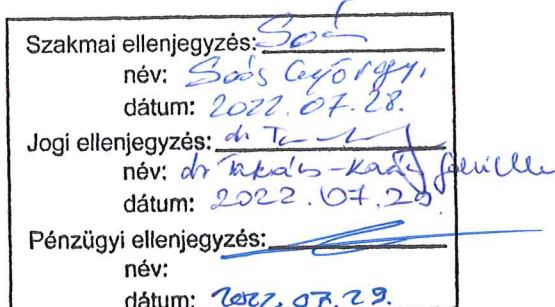 Szakmai ellenjegyzés: Soós
név: Soós György
dátum: 2022.07.28.
Jogi ellenjegyzés: dr
név: dr Takács-
dátum: 2022.07.29
Pénzügyi ellenjegyzés:
név:
dátum: 2022.07.29.